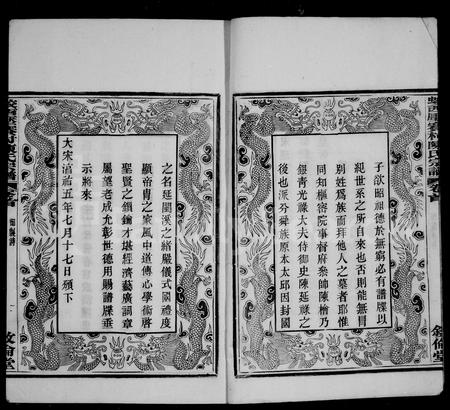 子欲昭祖德於無窮必有譜牒以
紀世系之所自來也否則能無冐
別姓爲族而拜他人之墓者耶惟
同知樞密院事督府叅帥陳檜乃
銀青光祿大夫侍御史陳延祿之
後也派分舜族原本太邱因封國
之名延閥漢之緒嚴儀式閫禮度
顯帝冑之家風中道傳心學術啓
聖賢之鑰鑰才堪經濟藝廣詞章
屬望老成允彰世德用賜譜牒垂
示將來
大宋淳祐五年七月十七日頒下
敘倫堂
敘倫堂